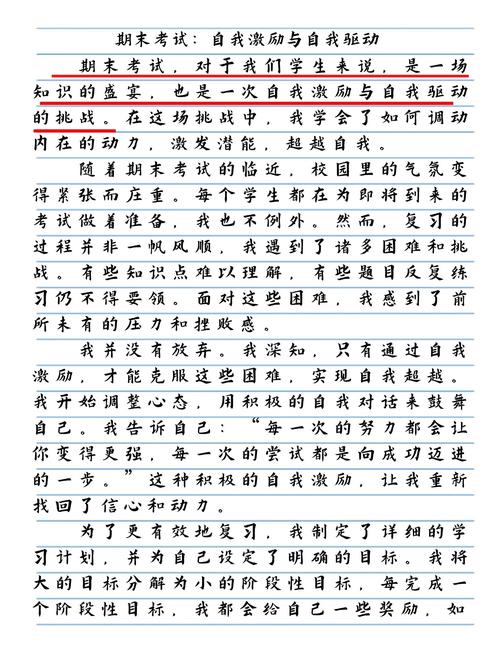 期末考试：自我激励与自我驱动
期末考试，对于我们学生来说，是一场
知识的盛宴，也是一次自我激励与自我驱动
的挑战。在这场挑战中，我学会了如何调动
内在的动力，激发潜能，超越自我。
随着期末考试的临近，校园里的气氛变
得紧张而庄重。每个学生都在为即将到来的
考试做着准备，我也不例外。然而，复习的
过程并非一帆风顺，我遇到了诸多困难和挑
战。有些知识点难以理解，有些题目反复练
习仍不得要领。面对这些困难，我感到了前
所未有的压力和挫败感。
我并没有放弃。我深知，只有通过自我
激励，才能克服这些困难，实现自我超越。
我开始调整心态，用积极的自我对话来鼓舞
自己。我告诉自己：“每一次的努力都会让
你变得更强，每一次的尝试都是向成功迈进
的一步。”这种积极的自我激励，让我重新
找回了信心和动力。
为了更有效地复习，我制定了详细的学
习计划，并为自己设定了明确的目标。我将
大的目标分解为小的阶段性目标，每完成一
个阶段性目标，我都会给自己一些奖励，如